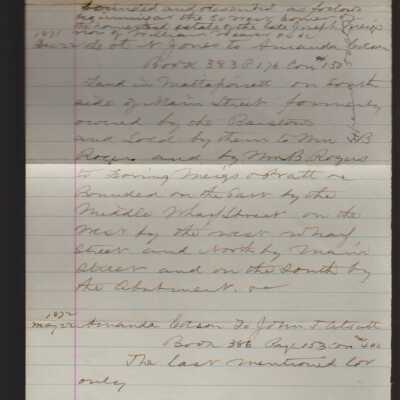 bounded and described as follows
beginning at the corner
the homestead estate of the late Joseph Meigs
1871
N. Jones to Amanda Cotson
Book 383 P 176 Con 150
Land in Mattapoisett on South
side of Main Street formerly
owned by the Barstow
and Sold by them to Wm B
Rogers and by Wm B. Rogers
to Loring Meigs & Pratt
Bounded on the East by the
Middle Wharf Street on the
West by the west wharf
Street and North by Main
Street and on the South by
the Abutment
1872
May 22 Amanda Cotson To John T Atsatt
Book 386 Page 153 Con
The last mentioned lot
only